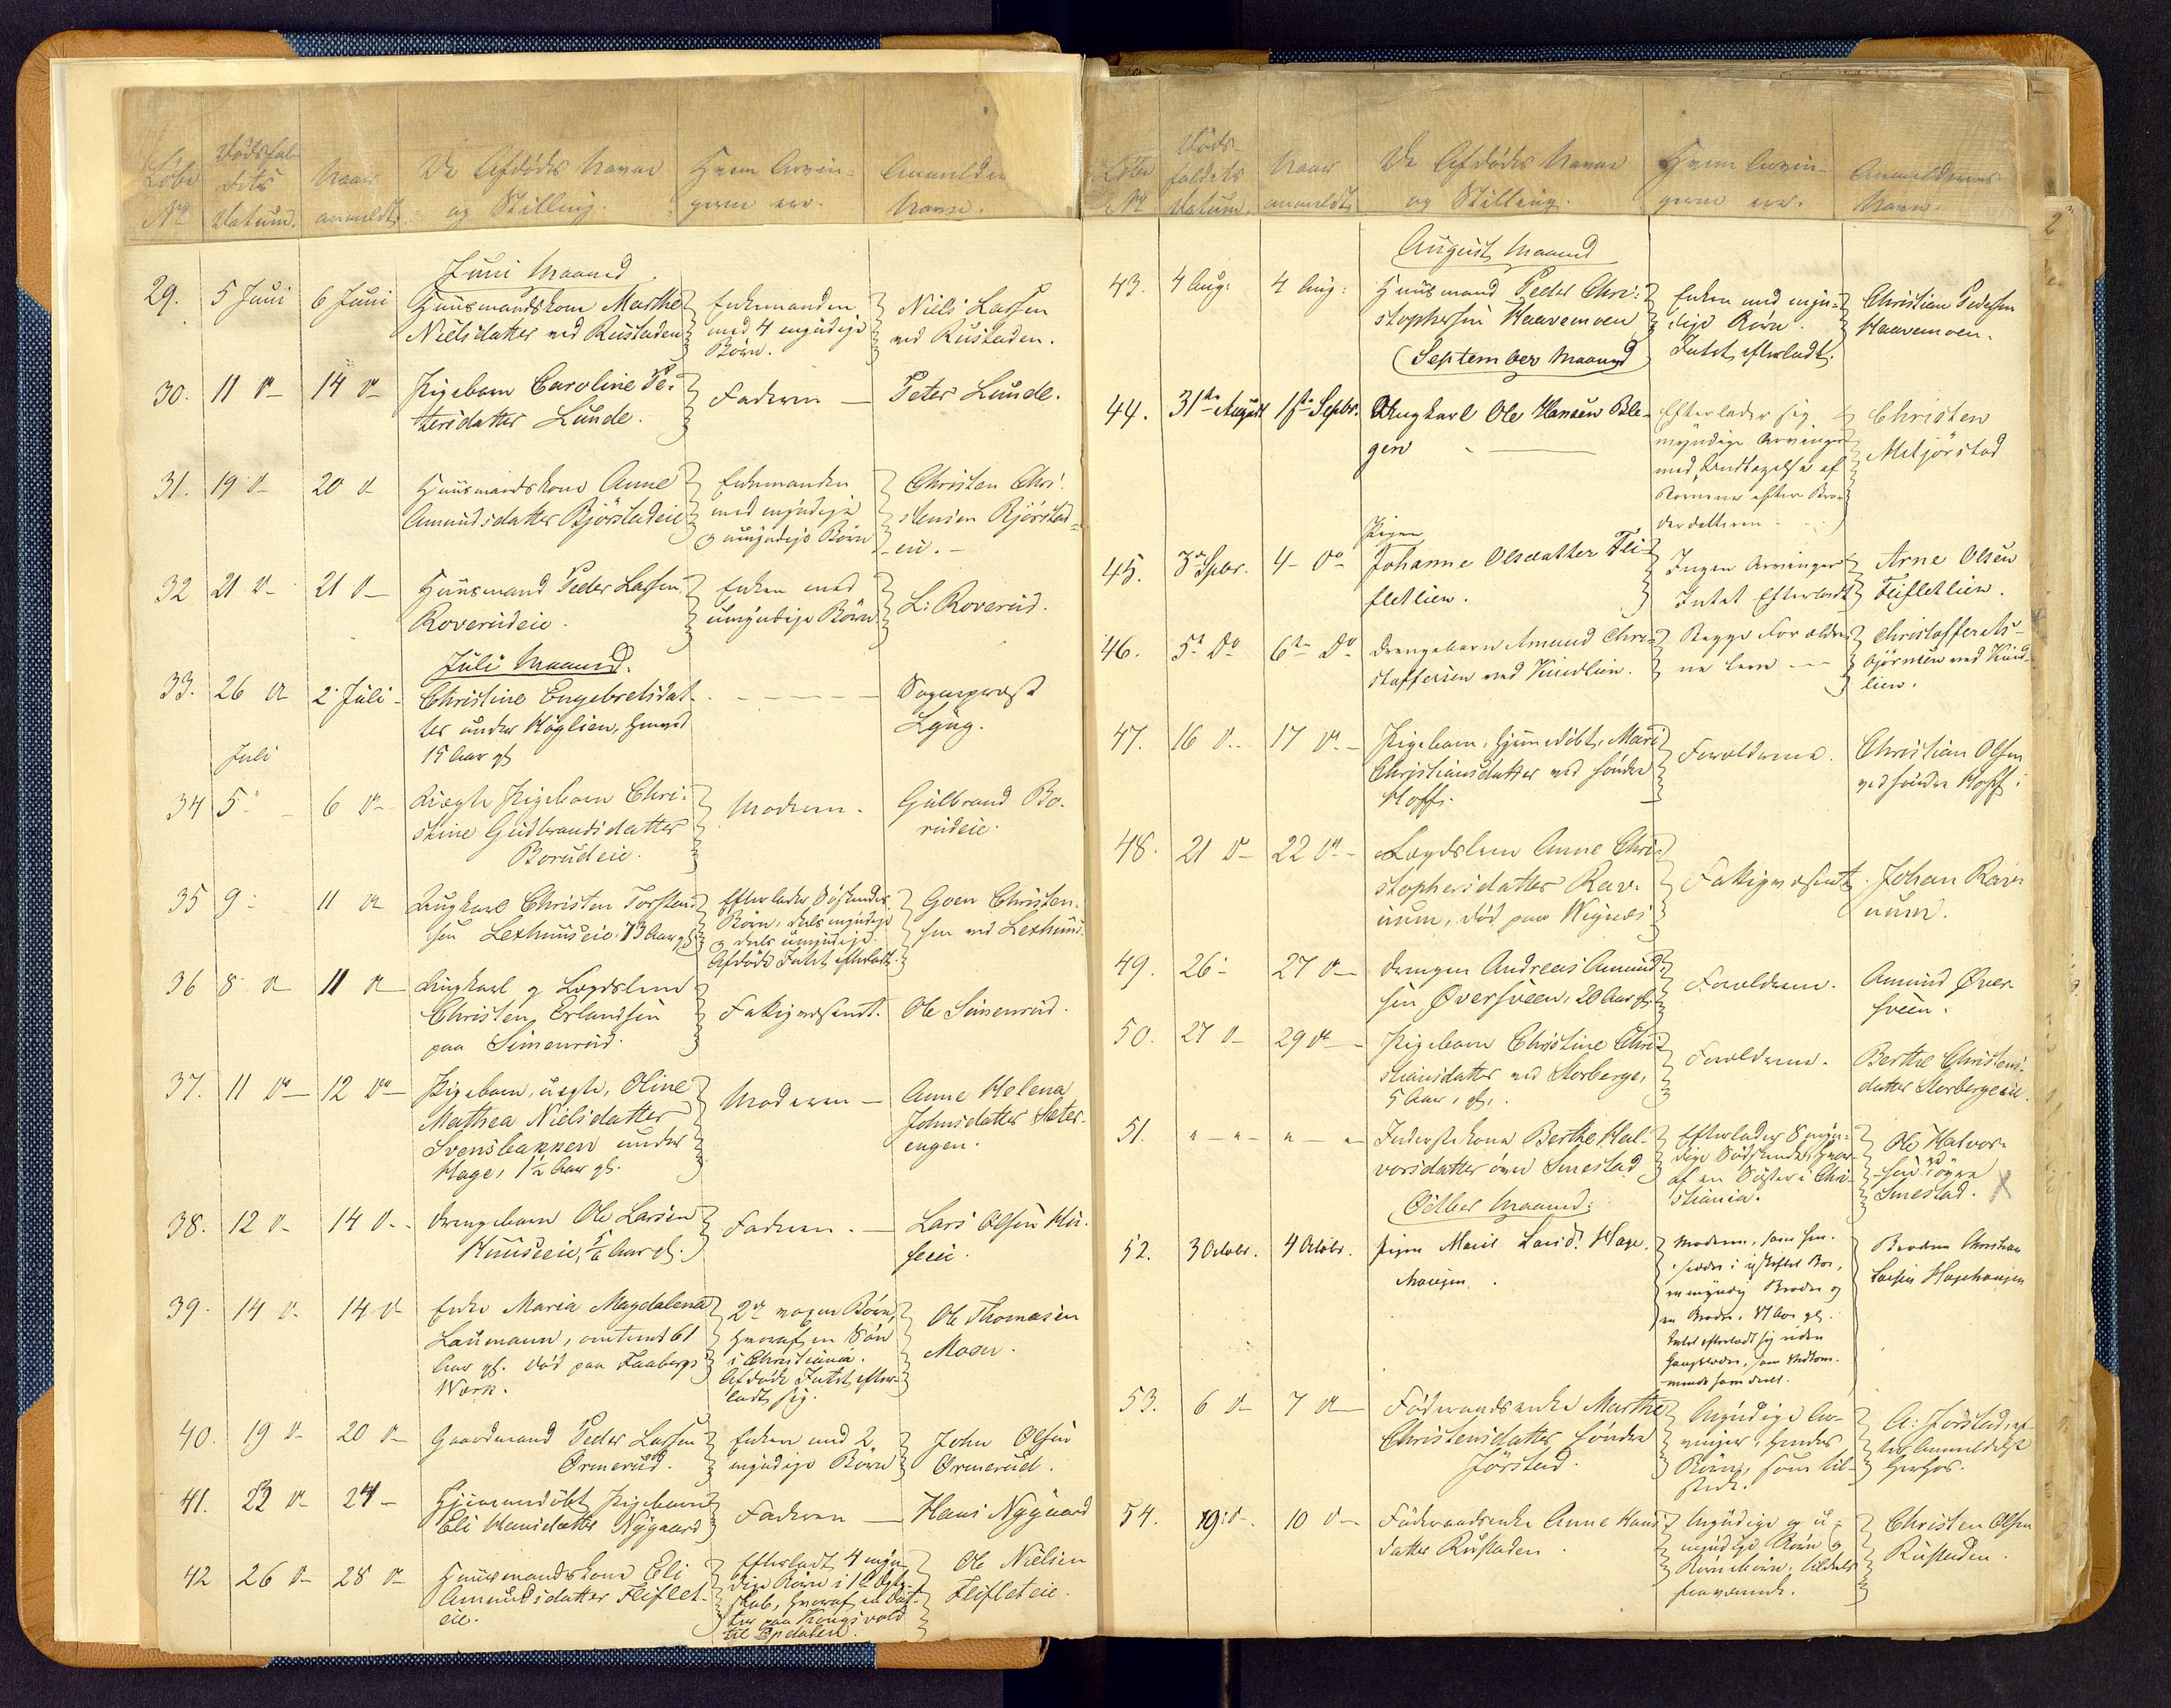 Löbe
No
Dödsfal-
dets
Datum.
Naar
anmeldt.
De Afdödes Navne
og Stilling.
Hvem Arvin-
gerne ere.
Anmelder
Navn.
Juni Maaned.
29. 5 Juni 6 Juni Huusmandskone Marthe
Nielsdatter ved Rustaden
Enkemanden
med 4 myndige
Börn.
Niels Larsen
ved Rustaden.
30. 11 do 14 do Pigebarn Caroline Pe-
tersdatter Lunde.
Faderen — Peter Lunde.
31. 19 do 20 do Huusmandskone Anne
Amundsdatter Björstadeie
Enkemanden
med myndige
og umyndige Börn
Christen Chri-
stensen Björstad-
eie.
32 21 do 21 do Huusmand Peder Larsen
Roverudeie.
Enken med
umyndige Börn
L: Roverud.
Juli Maaned.
33. 26 do 2 Juli Christine Engebretsdat-
ter under Höglien,
15 Aar gl.
Sogneprest
Lyng.
Juli
34 5 6 do Uægte Pigebarn Chri-
stine Gudbrandsdatter
Borudeie.
Moderen. Gulbrand Bo-
rudeie.
35 9 11 do Ungkarl Christen Torsten-
sen Lexhuuseie 73 Aar gl.
Efterlader Södskende-
Börn, dels myndige
og dels umyndige.
Afdöde Intet efterladt.
Goen Christen-
sen ved Lexhuus.
36 8 do 11 do Ungkarl og Lægdslem
Christen Erlandsen
paa Simenrud.
Fattigvæsenet. Ole Simenrud.
37. 11 do 12 do Pigebarn, uægte, Oline
Mathea Nielsdatter
Svensbakken under
Hage, 1½ Aar gl.
Moderen — Anne Helena
Johnsdatter Sæter-
engen.
38. 12 do 14 do Drengebarn Ole Larsen
Huuseeie, Aar gl.
Faderen. — Lars Olsen Hu-
seeie.
39. 14 do 14 do Enke Maria Magdalena
Laumann, omtrent 61
Aar gl. död paa Faabergs
Værk.
2de voxne Börn,
hvoraf en Sön
i Christiania.
Afdöde Intet efter-
ladt sig.
Ole Thomasen
Moen.
40. 19 do 20 do Gaardmand Peder Larsen
Ormerud.
Enken med 2
myndige Börn
John Olsen
Ormerud.
41. 22 do 24 Hjemmedöbt Pigebarn
Eli Hansdatter Nygaard
Faderen — Hans Nygaard
42 26 do 28 do Huusmandskone Eli
Amundsdatter Fliflet-
eie.
Efterladt 4 myn-
dige Börn i 1ste Ægte-
skab, hvoraf en Dat-
ter paa Kongsvold
til Opdalen.
Ole Nielsen
Flifleteie.
Löbe
No
Döds-
faldets
Datum.
Naar
anmeldt.
De Afdödes Navne
og Stilling.
Hvem Arvin-
gerne ere.
Anmelderens
Navn.
August Maaned
43. 4 Aug: 4 Aug: Huusmand Peder Chri-
stophersen Haavemoen
Enken med myn-
dige Börn.
Intet efterladt.
Christian Pedersen
Haavemoen.
September Maaned
44. 31te August 1ste Septbr. Ungkarl Ole Hansen Ble-
gen
Efterlader sig
myndige Arvinger
med Undtagelse af
Börnene efter Bro-
derdatteren
Christen
Mitjörstad
45. 3de Septbr. 4 do Pigen
Johanne Olsdatter Fli-
fletlien.
Ingen Arvinger
Intet Efterladt
Arne Olsen
Flifletlien.
46. 5te do 6te do Drengebarn Amund Chri-
stoffersen ved Kindlien.
Begge Forældre-
ne leve
Christoffer As-
björnsen ved Kind-
lien.
47. 16 do 17 do Pigebarn, hjemmedöbt, Mari
Christiansdatter ved söndre
Hoff.
Forældrene. Christian Olsen
ved söndre Hoff.
48. 21 do 22 do Lægdslem Anne Chri-
stophersdatter Rav-
num, död paa Wignæs
Fattigvæsenet. Johan Rav-
num.
49. 26 27 do Drengen Andreas Amund-
sen Øversveen, 20 Aar gl.
Forældrene. Amund Øver-
sveen.
50. 27 do 29 do Pigebarn Christine Chri-
stiansdatter ved Storberge,
5 Aar gl.
Forældrene. Berthe Christens-
datter Storbergeeie.
51. " " " " Inderstekone Berthe Hal-
vorsdatter övre Smestad
Efterlader 8 myn-
dige Södskende, hvor-
af en Söster i Chri-
stiania.
Ole Halvor-
sen ved övre
Smestad. X
October Maaned:
52. 3 Octobr. 4 Octobr. Pigen Marie Larsd. Hage-
haugen.
Moderen, som hen-
sidder i uskiftet Bo,
en myndig Broder og
en Broder, 17 Aar gl.
Intet efterladt sig uden
Gangklæder,
Broderen Christian
Larsen Hagehaugen
53. 6 do 7 do Föderaadsenke Marthe
Christensdatter söndre
Jörstad.
Myndige Ar-
vinger, hendes
Börn, som til-
stede.
A: Jörstad, ef-
ter Anmeldelse
54. 9 do 10 do Föderaadsenke Anne Hans-
datter Rustaden.
Myndige og u-
myndige Börn og
Börnebörn, tildels
fraværende.
Christen Olsen
Rustaden.
2